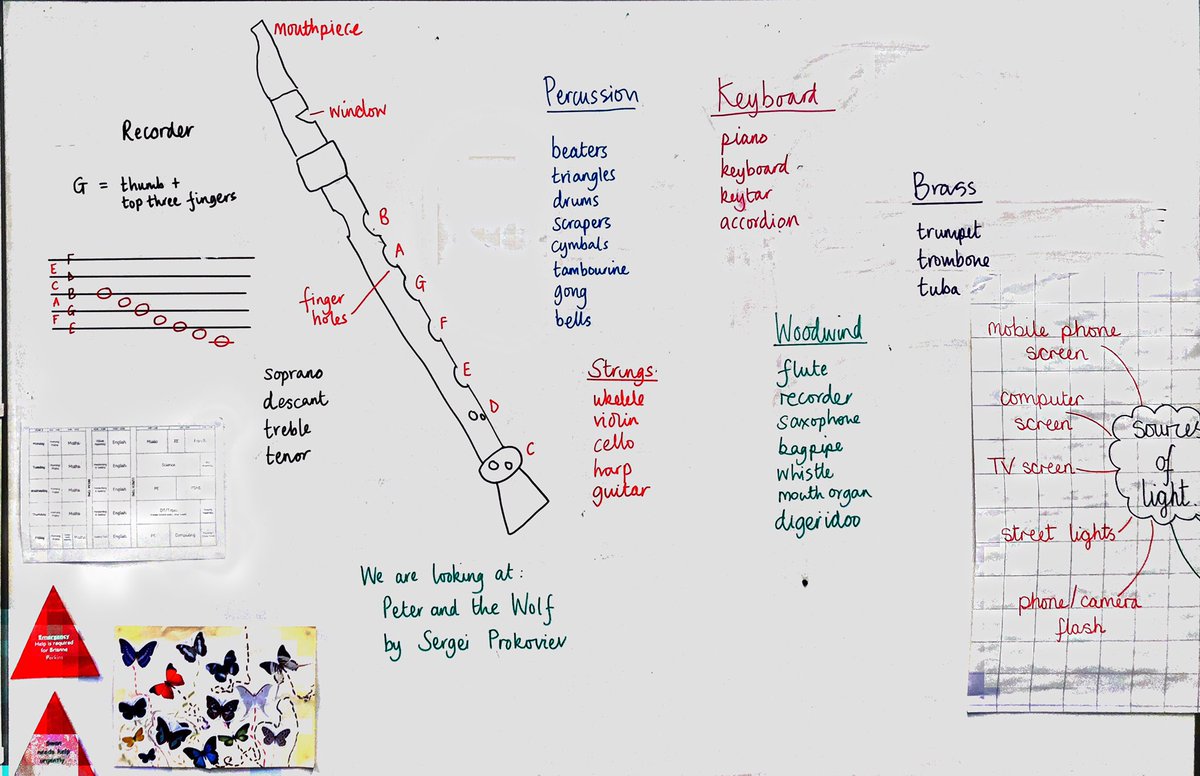 mouthpiece
window
Recorder
G = thumb +
top three fingers
F
E
D
C
B
A
G
F
E
B
A
G
F
E
D
C
finger
holes
soprano
descant
treble
tenor
Percussion
beaters
triangles
drums
scrapers
cymbals
tambourine
gong
bells
Keyboard
piano
keyboard
keytar
accordion
Brass
trumpet
trombone
tuba
Strings
ukelele
violin
cello
harp
guitar
Woodwind
flute
recorder
saxophone
bagpipe
whistle
mouth organ
digeridoo
We are looking at:
Peter and the Wolf
by Sergei Prokoviev
mobile phone
screen
computer
screen
TV screen
street lights
phone/camera
flash
sources
of
light
Monday Maths English Music RE French
Tuesday Maths English Science
Wednesday Maths English PE PSHE
Thursday Maths English
Friday Maths English PE Computing
Emergency
Help is required
for Brianna
Perkins
needs help
urgently